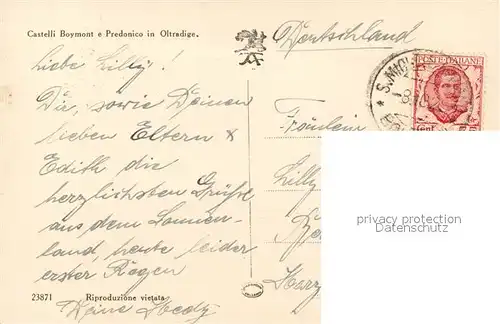 Castelli Boymont e Predonico in Oltradige.
Deutschland
liebe Lilly!
Dir, sowie Deinen
lieben Eltern &
Edith die
herzlichsten Grüße
aus dem Sonnen-
land, heute leider
erster Regen
Deine Hedy
23871 Riproduzione vietata
POSTE ITALIANE
S. MICHELE
Cent
Fräulein
Lilly
Harz
privacy protection